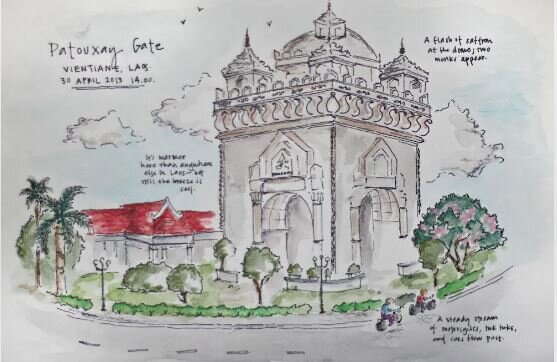 Patouxay Gate
VIENTIANE, LAOS.
30 APRIL 2013 14.00.
A flash of saffron
at the dome; two
monks appear.
It's warmer
here than anywhere
else in Laos — but
still the breeze is
easy.
A steady stream
of motorcycles, tuk tuks,
and cars flow past.